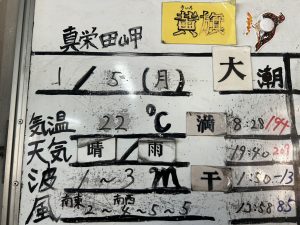 真栄田岬
黄旗
1/5(月)
大潮
気温 22℃
満 8:28 194
天気 晴/雨
19:40 209
波 1~3m
干 1:50 -13
風 南東2~南西4~5~5
13:58 85